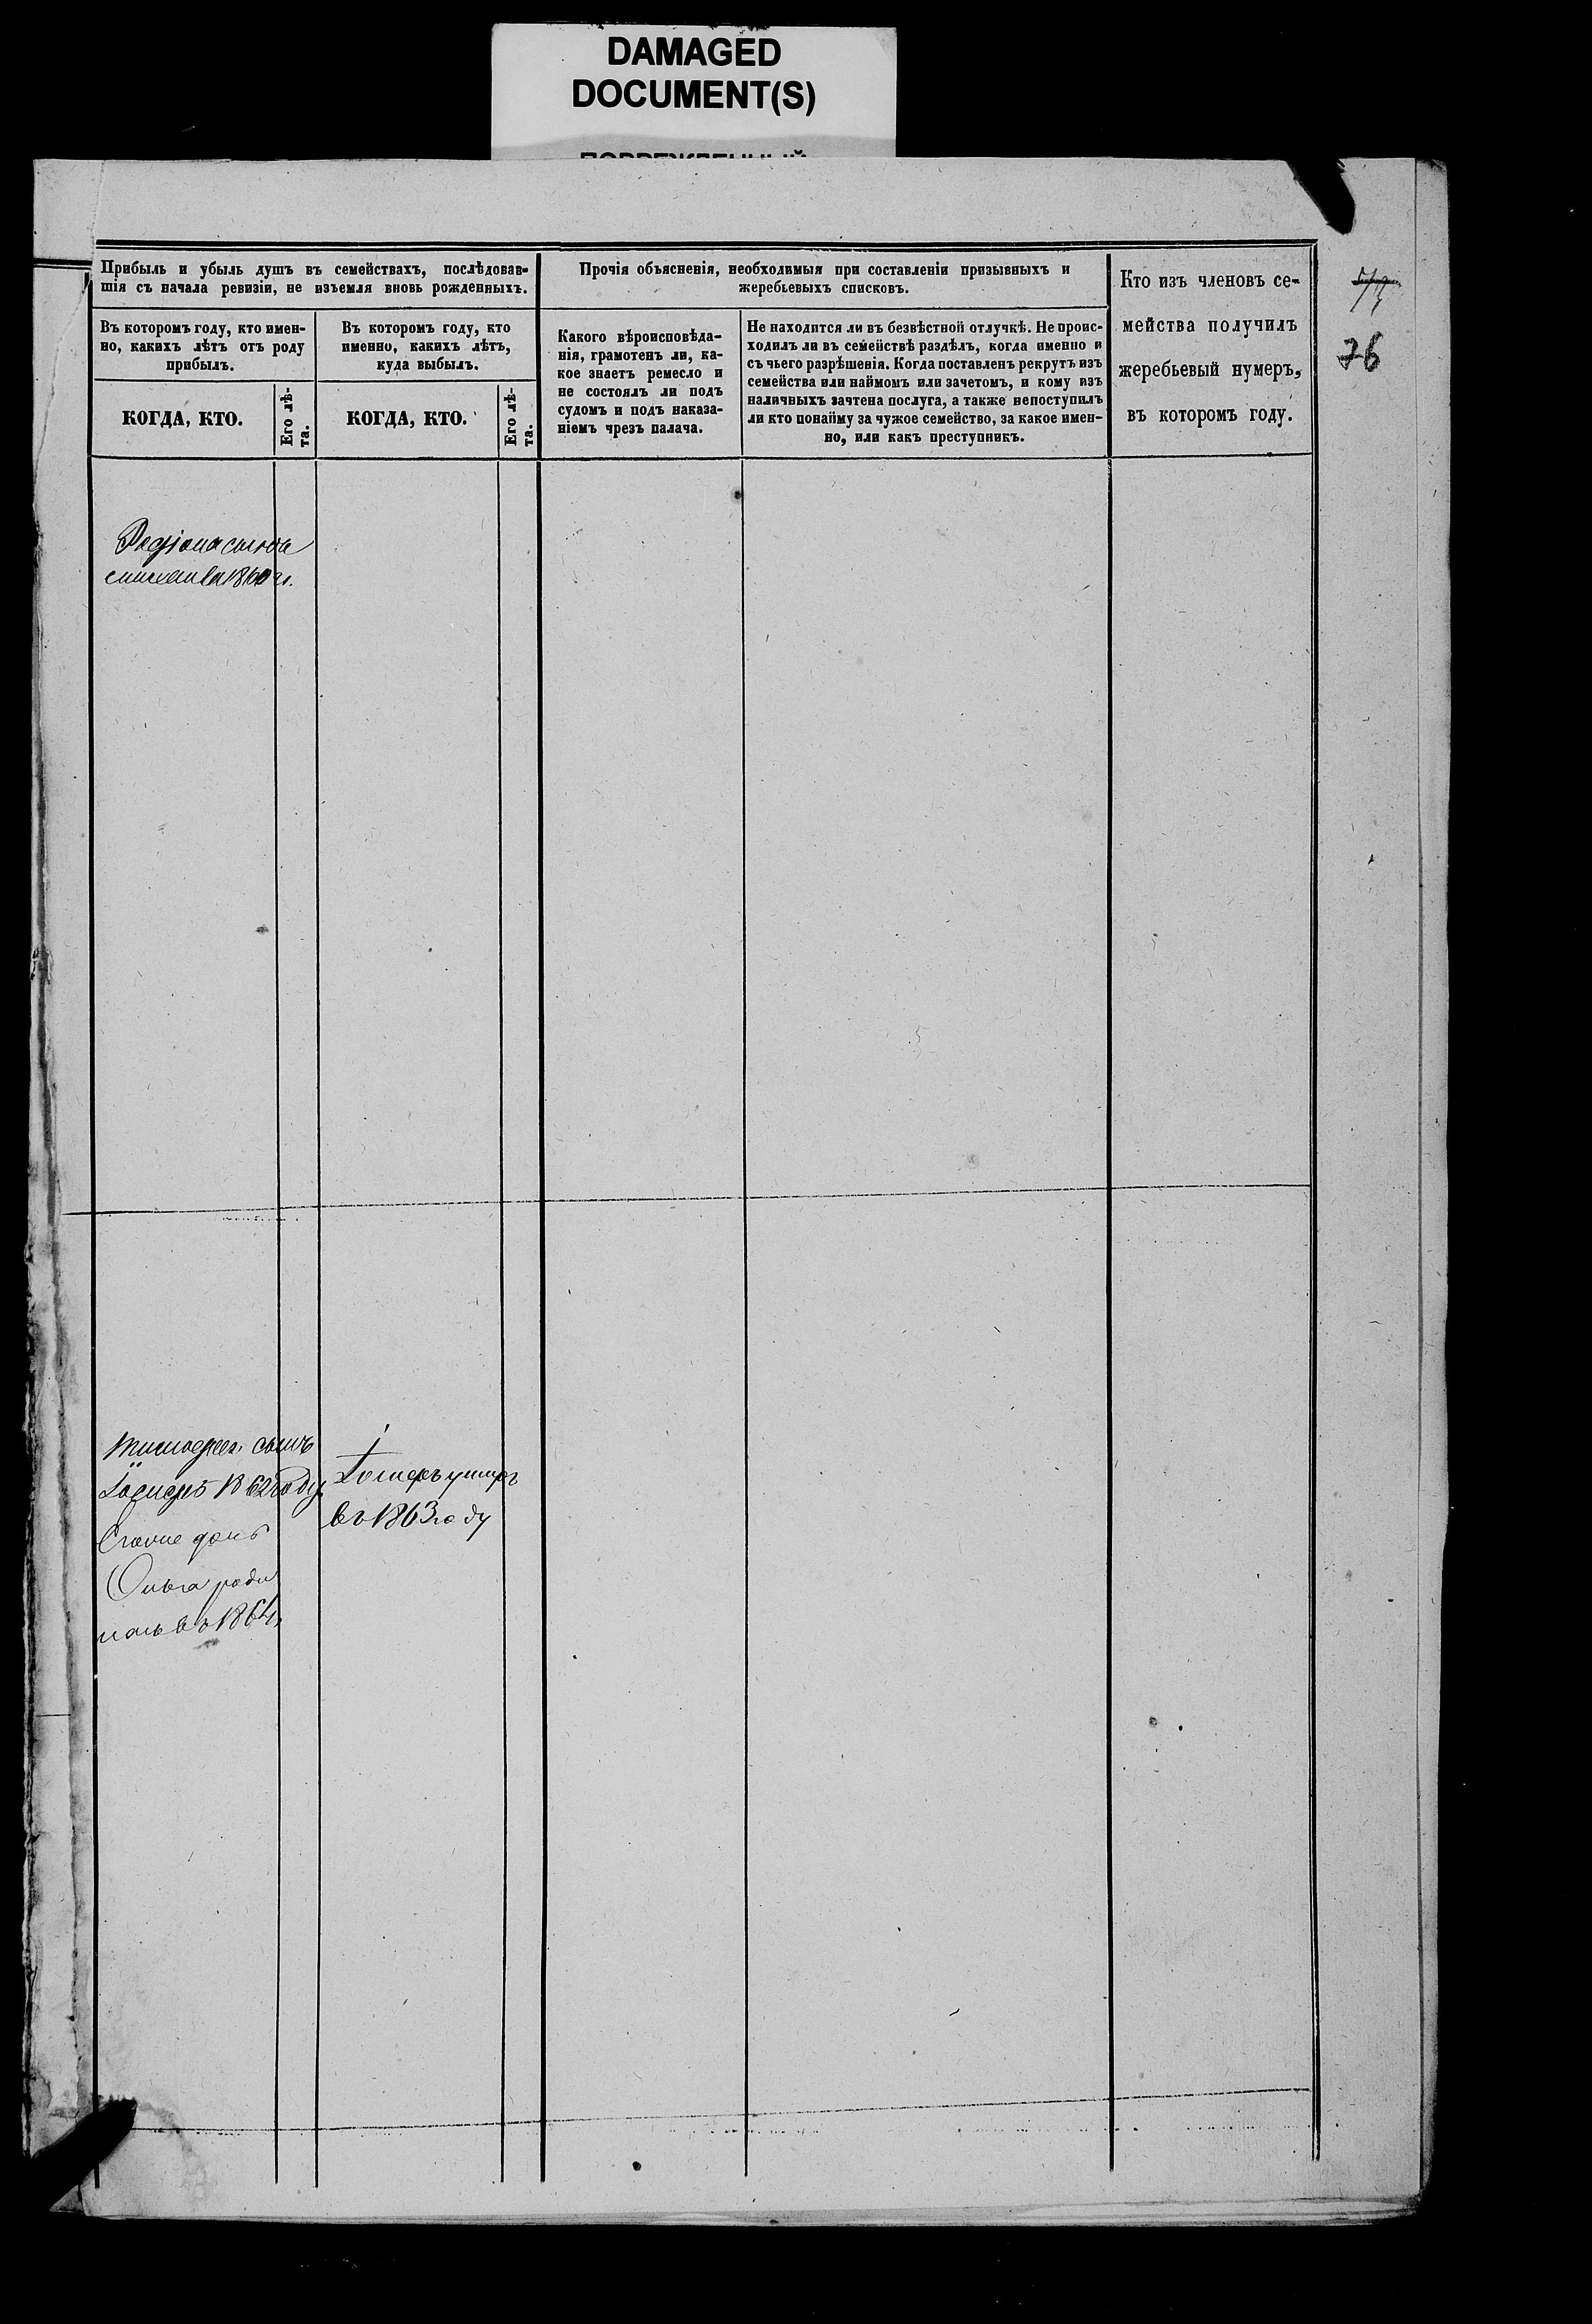 DAMAGED
DOCUMENT(S)
Прибыль и убыль душъ въ семействахъ, послѣдовав-
шія съ начала ревизіи, не изъемля вновь рожденныхъ.
Прочія объясненія, необходимыя при составленіи призывныхъ и
жеребьевыхъ списковъ.
Кто изъ членовъ се-
мейства получилъ
жеребьевый нумеръ,
въ которомъ году.
76
Въ которомъ году, кто имен-
но, какихъ лѣтъ отъ роду
прибылъ.
Въ которомъ году, кто
именно, какихъ лѣтъ,
куда выбылъ.
Какого вѣроисповѣда-
нія, грамотенъ ли, ка-
кое знаетъ ремесло и
не состоялъ ли подъ
судомъ и подъ наказа-
ніемъ чрезъ палача.
Не находится ли въ безвѣстной отлучкѣ. Не проис-
ходилъ ли въ семействѣ раздѣлъ, когда именно и
съ чьего разрѣшенія. Когда поставленъ рекрутъ изъ
семейства или наймомъ или зачетомъ, и кому изъ
наличныхъ зачтена послуга, а также непоступилъ
ли кто понайму за чужое семейство, за какое имен-
но, или какъ преступникъ.
КОГДА, КТО.
Его лѣ-
та.
КОГДА, КТО.
Его лѣ-
та.
1860 г.
сынъ
1862 году
Ольга роди
лась въ 1864
умеръ
въ 1863 году